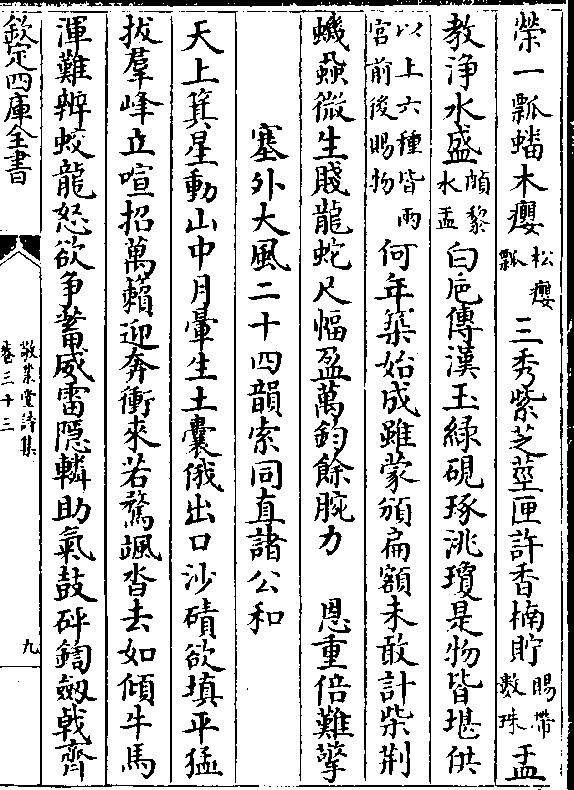 榮一瓢蟠木癭松癭瓢三秀紫芝莖匣許香楠貯賜帶數珠盂
教浄水盛頗黎水盂白巵傳漢玉緑硯琢洮瓊是物皆堪供
以上六種皆兩宫前後賜物何年築始成雖蒙頒扁額未敢計柴荆
蟣蝨微生賤龍蛇尺幅盈萬鈞餘腕力 恩重倍難擎
塞外大風二十四韻索同直諸公和
天上箕星動山中月暈生土囊俄出口沙磧欲填平猛
拔羣峰立喧招萬籟迎奔衝來若驚颯沓去如傾牛馬
渾難辨蛟龍怒欲争蓄威雷隱轔助氣鼓砰鍧劒㦸齊
欽定四庫全書
敬業堂詩集
卷三十三
九